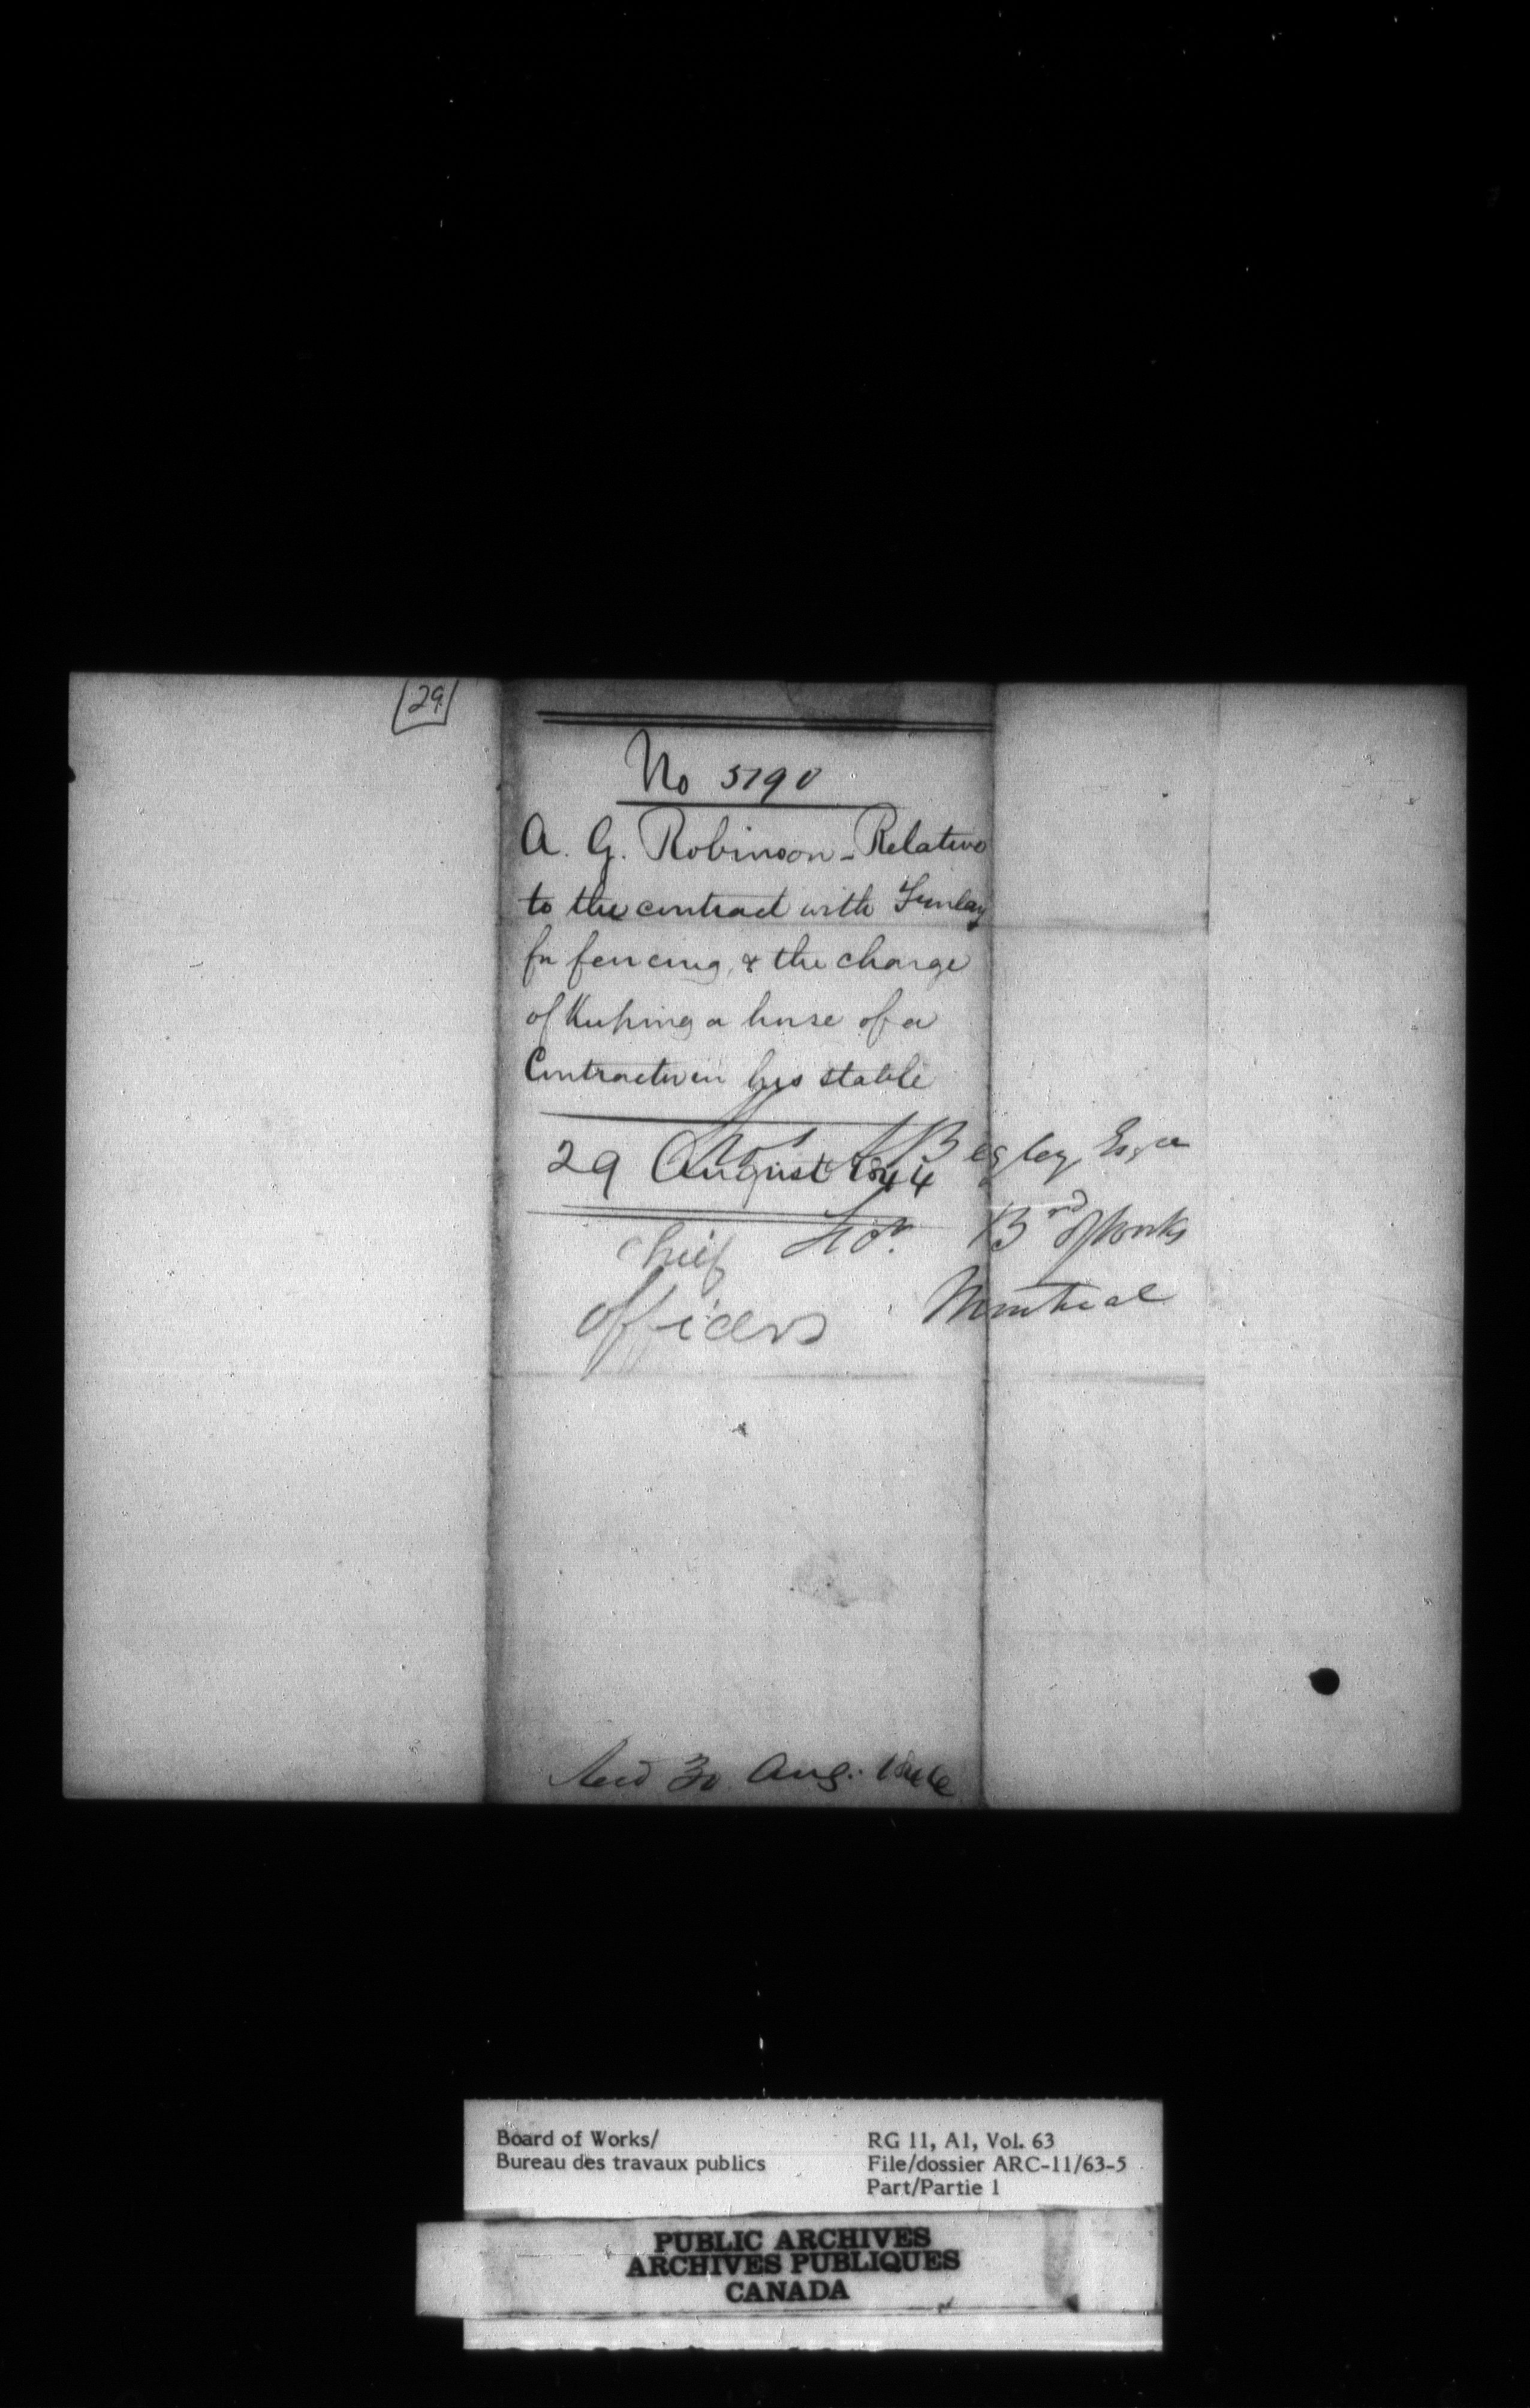 29
No 5790
A. G. Robinson - Relative
to the contract with
for fencing, & the charge
of Keeping a horse of a
Contractor in his stable
Begley, Esqre
29 August 1844
Bd of Works
Chief
Montreal
officers
30 Aug:
Board of Works/
Bureau des travaux publics
RG 11, A1, Vol. 63
File/dossier ARC-11/63-5
Part/Partie 1
PUBLIC ARCHIVES
ARCHIVES PUBLIQUES
CANADA